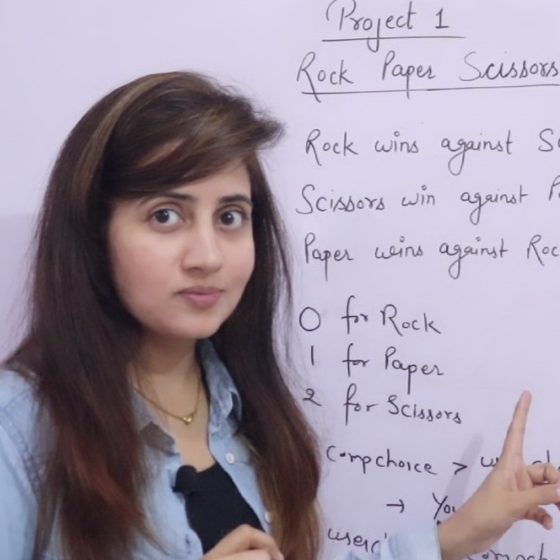 Project 1
Rock Paper Scissors
Rock wins against
Scissors win against
Paper wins against Roc
0 for Rock
1 for Paper
2 for Scissors
Compchoice >
→ You
user